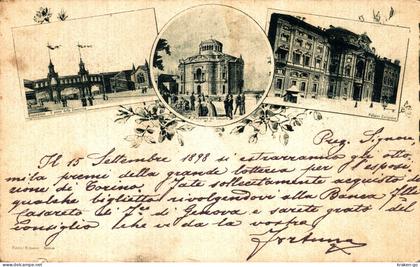 Palazzo Carignano
Preg. Signore,
Il 15 Settembre 1898 si estrarranno gli otto
mila premi della grande lotteria per l'esposi
zione di Torino. Fate sollecitamente acquisto di
qualche biglietto rivolgendovi alla Banca F.lli
Casareto di F.co di Genova e sarete grato del
consiglio che vi dà la vostra
Fortuna